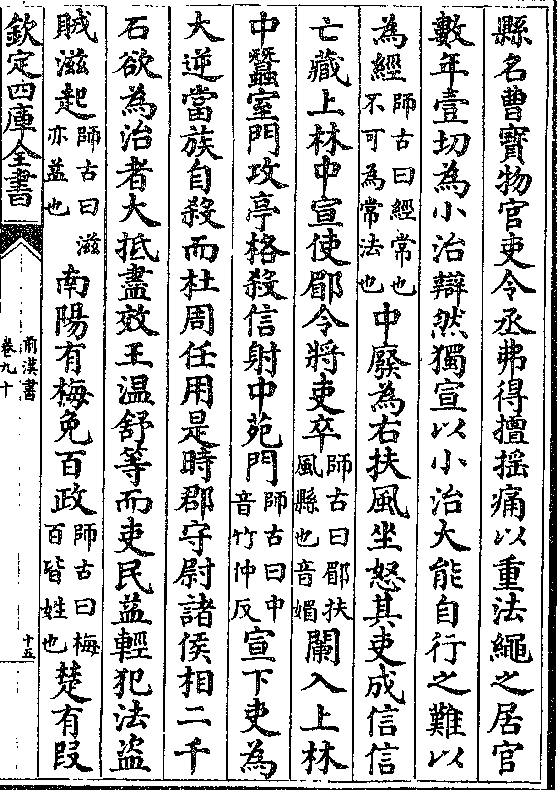 縣名曹寳物官吏令丞弗得擅揺痛以重法繩之居官
數年壹切為小治辯然獨宣以小治大能自行之難以
為經師古曰經常也不可為常法也中廢為右扶風坐怒其吏成信信
亡藏上林中宣使郿令將吏卒師古曰郿扶風縣也音媚闌入上林
中蠶室門攻亭格殺信射中苑門師古曰中音竹仲反宣下吏為
大逆當族自殺而杜周任用是時郡守尉諸侯相二千
石欲為治者大抵盡效王温舒等而吏民益輕犯法盗
賊滋起師古曰滋亦益也南陽有梅免百政師古曰梅百皆姓也楚有段
欽定四庫全書
前漢書
卷九十
十五